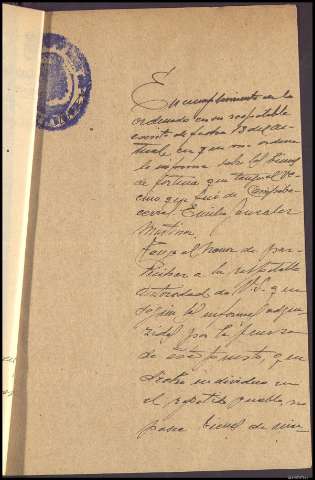 En cumplimiento a lo
ordenado en su respetable
escrito de fecha 13 del ac-
tual, en que me ordena
le informe sobre los bienes
de fortuna que tenga el ve-
cino que fué de
Emilio González
Martínez
Tengo el honor de par-
ticipar a la respetable
autoridad de V.S. que
según los informes adqui-
ridos por la fuerza
de este puesto, que
dicho individuo en
el repetido pueblo, no
posee bienes de nin-